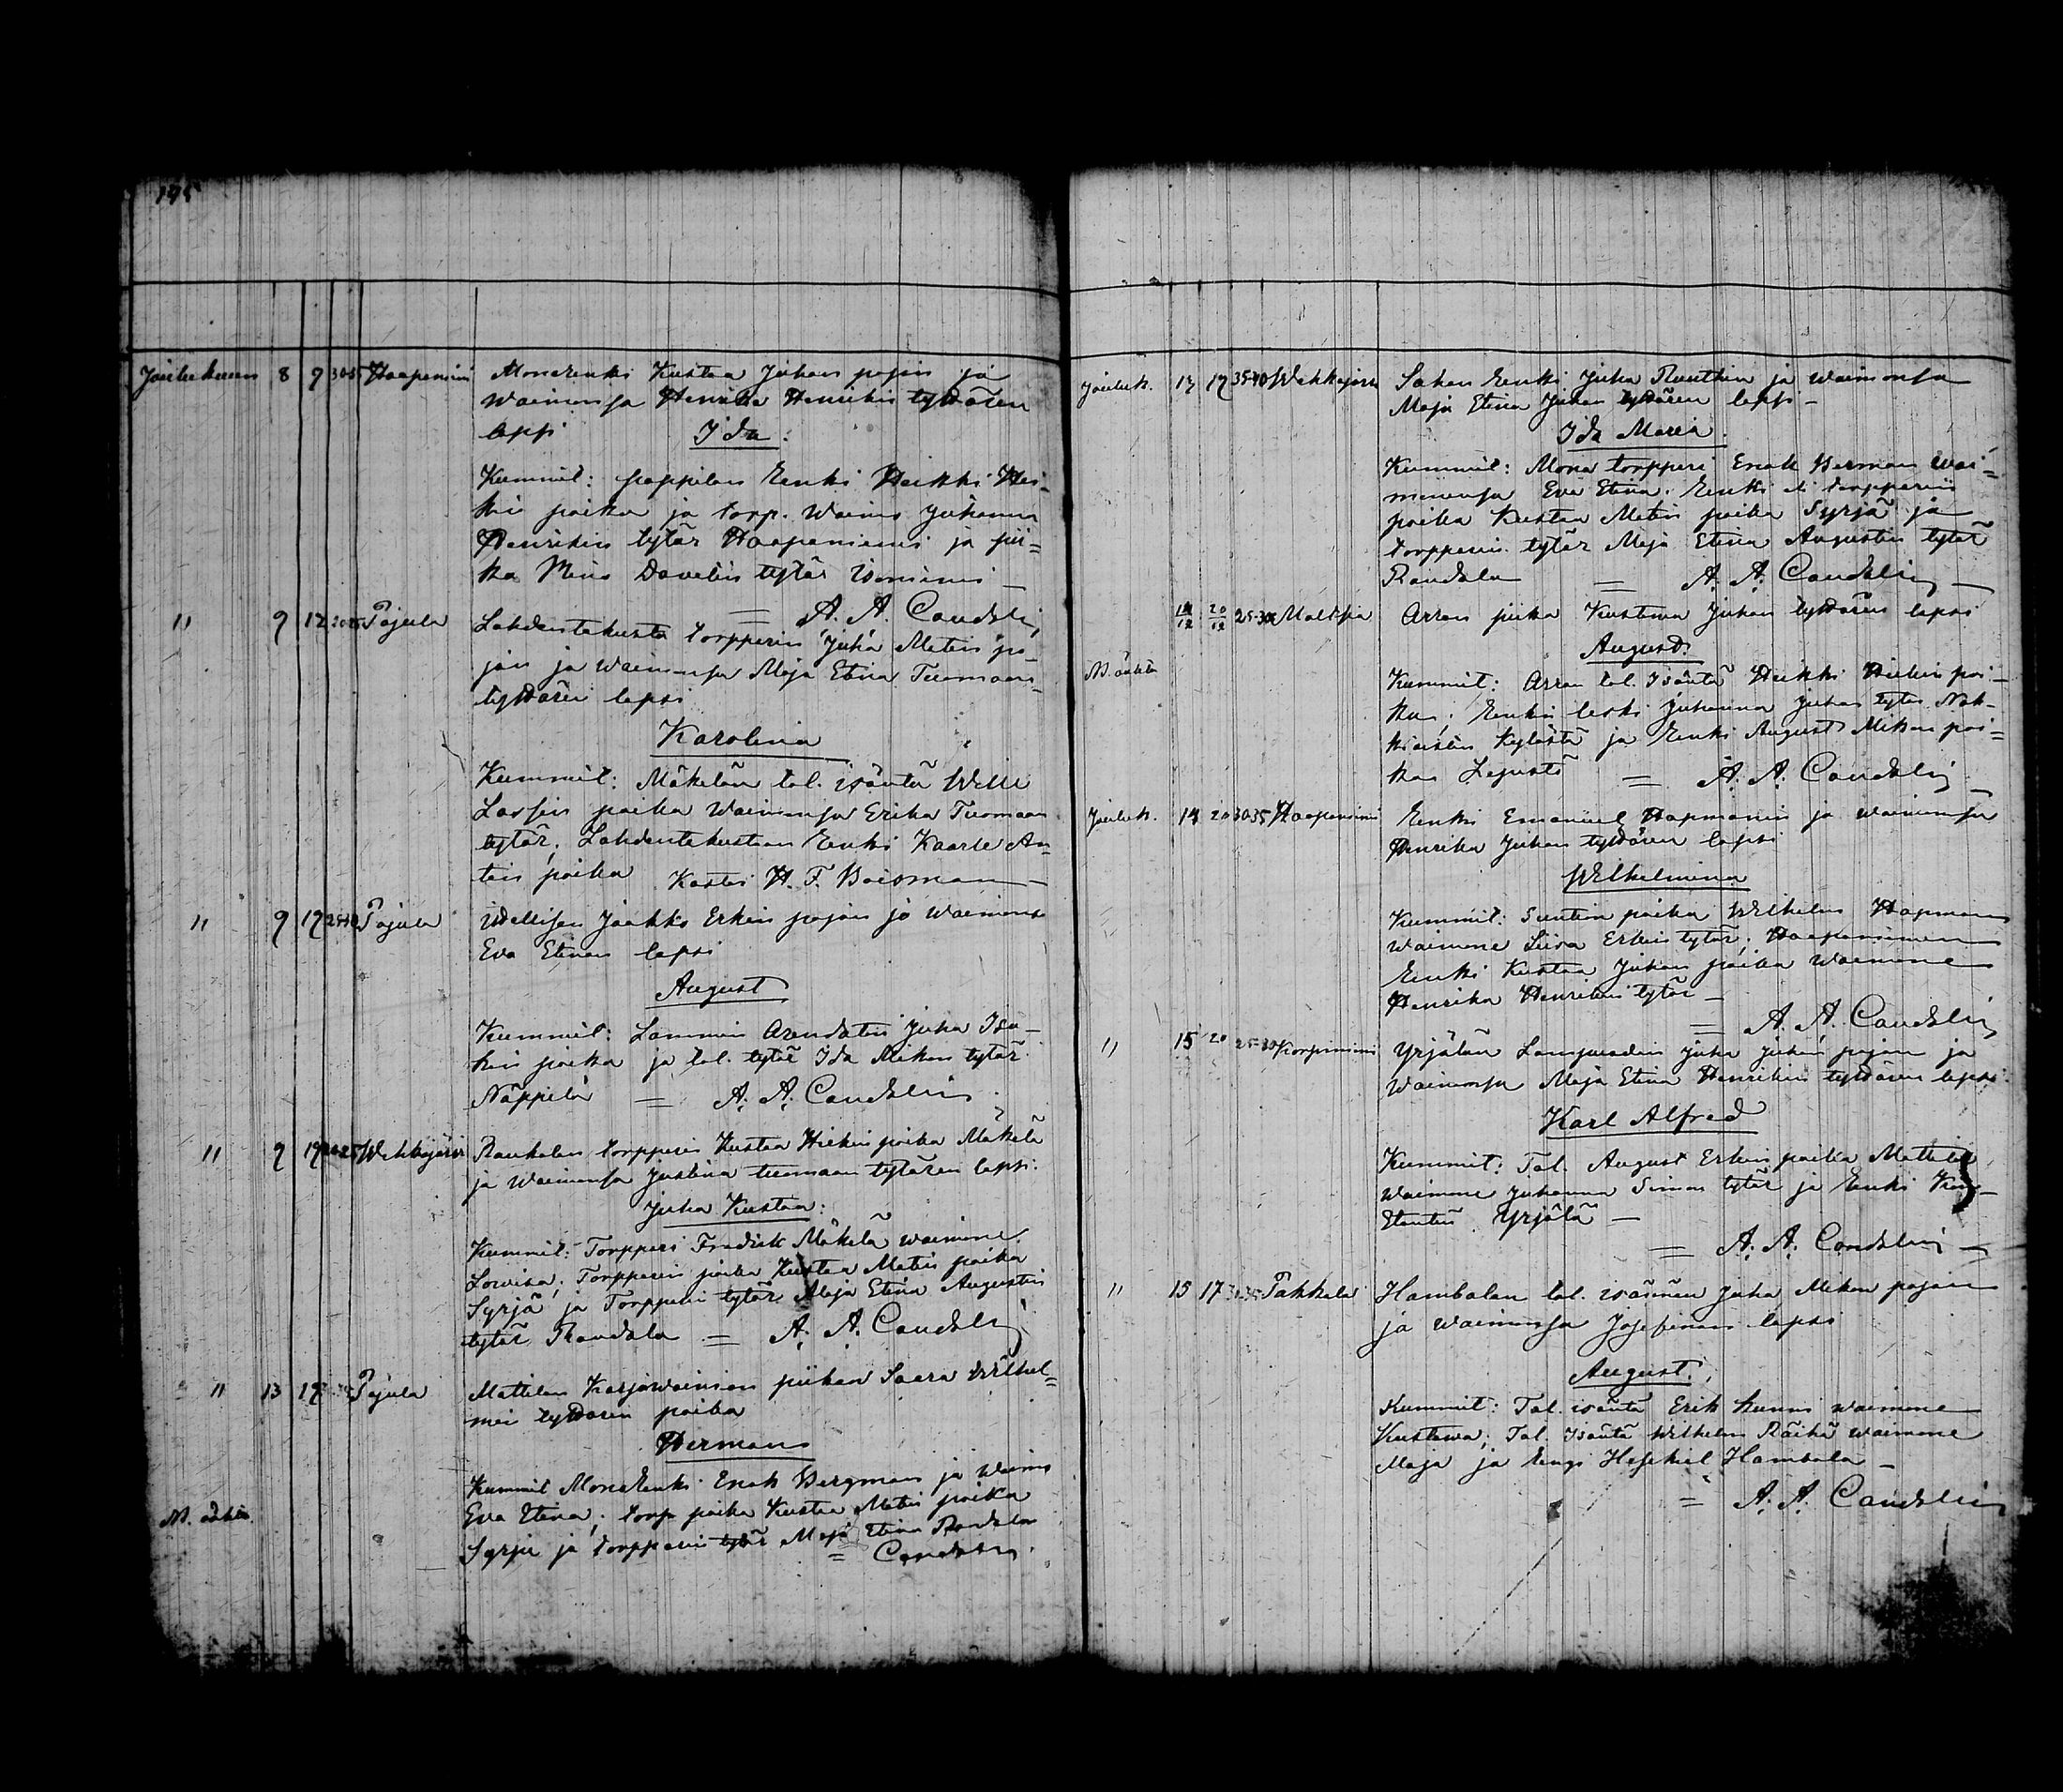 195
Joulukuun 8 9 30-35 Haapaniemi Monarenki Kustaa Juhan pojan ja
waimonsa Henrika Henrikin tyttären
lapsi Ida.
Kummit: pappilan Renki Heikki Hei-
kin poika ja torp. Waimo Juhanna
Henrikin tytär Haapaniemi ja pii=
ka Davetin tytär
= A. A. Candelin
" 9 12 20-25 Pajula Lahdentakusta torpperin Juha Matin po-
jan ja waimonsa Maja Stina Tuomaan-
tyttären lapsi
Karolina
Kummit: Mäkelän tal. isäntä Wille
Lassin poika Waimonsa Erika Tuomaan
tytär, Lahdentakustan Renki Kaarle An-
tin poika Kasti H. F. Boisman
" 9 17 Pajula Jaakko Erkin pojan ja waimonsa
Eva Stinan lapsi
August
Kummit: Lammin Arendatin Juha Isa-
kin poika ja tal. tytär Ida Mikon tytär
Näppilä = A. A. Candelin
" 9 17 20-25 Wehkajärvi Raukolan torpperin Kustaa Heikin poika Mäkelä
ja waimonsa Justina tuomaan tytären lapsi:
Juha Kustaa:
Kummit: Torpperi Fredrik Mäkelä waimone
Lowisa; Torpperin poika Kustaa Matin poika
Syrjä ja Torpperin tytär Maja Stina Augustin
tytär Randala = A. A. Candelin
" 13 17 Pajula Mattilan Karjawaimon piikan Saara Wilhel=
mi tyttären poika
Herman
Kummit Monarenki Enok Bergman ja waimo
Eva Stina; torp. poika Kustaa Matin poika
M. äkktö. Syrjä ja torpperin tytär Maja Stina Randala
= Candelin.
Jouluk. 13 17 35-40 Wehkajärvi Sahan Renki Juha Ruuthin ja waimonsa
Maja Stina Juhan tyttären lapsi-
Ida Maria.
Kummit: Mona torpperi Enok Herman wai=
monensa Eva Stina. Renki torpperin
poika Kustaa Matin poika Syrjä ja
torpperin tytär Maja Stina Augustin tytär
Randala = A. A. Candelin
14/12 20/12 25-30 Maltpia Arran piika Kustawa Juhan tyttären lapsi
August.
Kummit: Arran tal. Isäntä Heikki Heikin poi-
ka; Renkin leski Juhanna Juhan tytär
Kylästä ja Renki August Mikon poi=
ka = A. A. Candelin
Jouluk. 14 20 30-35 Haapaniemi Renki Emanuel Hapmanin ja waimonsa
Henrika Juhan tyttären lapsi
Wilhelmina
Kummit: Suntin poika Wilhelm Hapman
waimone Liisa Erkin tytär; Haapaniemen
Renki Kustaa Juhan poika waimone
Henrika Henrikin tytär -
= A. A. Candelin
" 15 20 25-30 Korpiniemi Yrjälän Lampuodin Juha Juhan pojan ja
waimonsa Maja Stina Henrikin tyttären lapsi.
Karl Alfred
Kummit: Tal. August Erkin poika Mattila
waimone Juhanna Simon tytär ja Renki
Yrjälä -
= A. A. Candelin -
" 15 17 Pakkala Hambalan tal. isännän Juha Mikon pojan
ja waimonsa Josefinan lapsi
August.
Kummit: Tal. isäntä Erik waimone
Kustawa; Tal. Isäntä Wilhelm Räikä waimone
Maja ja Hesekiel Hambala -
= A. A. Candelin